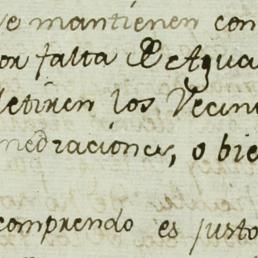 se mantienen con
por falta de Agua
Retiren los Vecin
medraciones, o bie
comprendo es justo